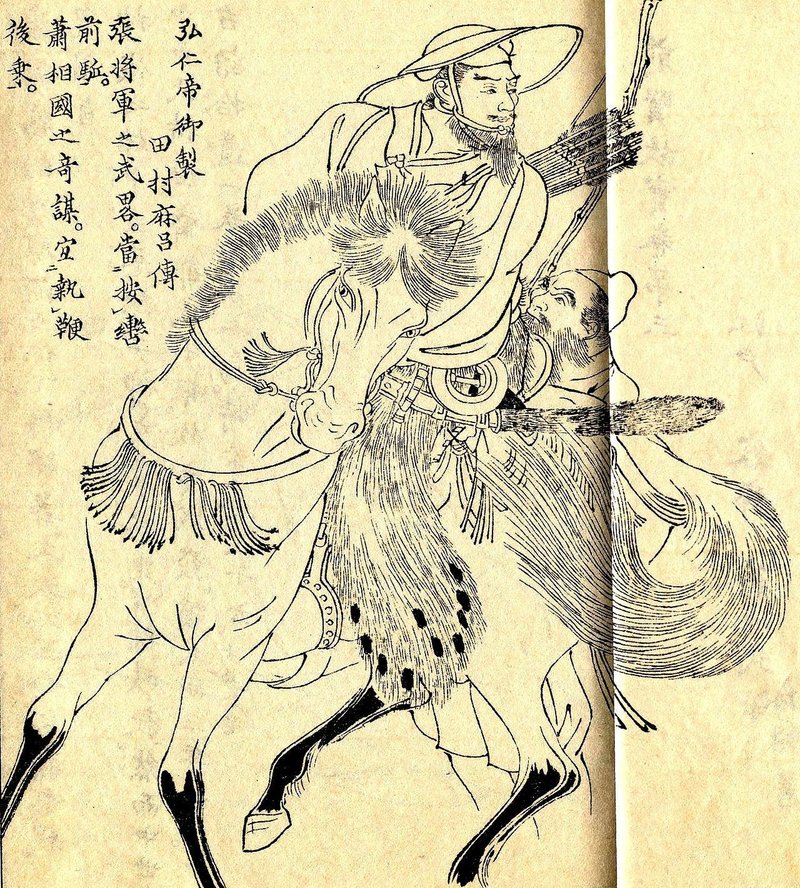 弘仁帝御製
田村麻呂傳
張將軍之武畧。當ニ按」轡
前駈。
蕭相國之奇謀。宜ニ執」鞭
後乗。